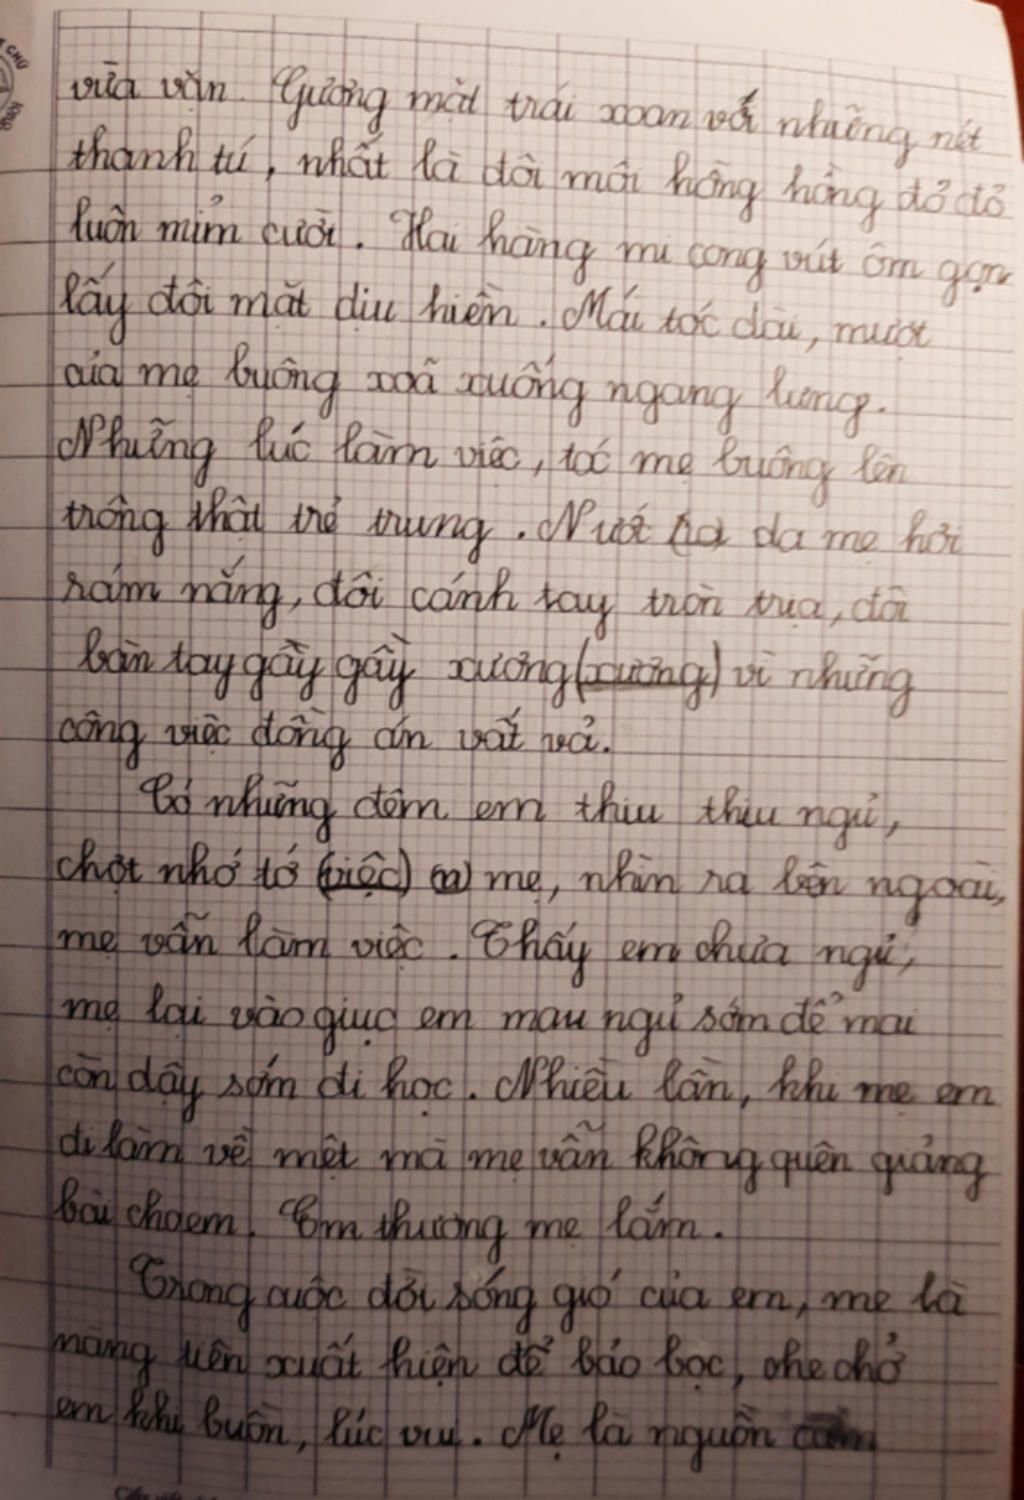 vừa vặn. Gương mặt trái xoan với những nét
thanh tú, nhất là đôi môi hồng hồng đỏ đỏ
luôn mỉm cười. Hai hàng mi cong vút ôm gọn
lấy đôi mắt dịu hiền. Mái tóc dài, mượt
của mẹ buông xoã xuống ngang lưng.
Những lúc làm việc, tóc mẹ buông lên
trông thật trẻ trung. Nướ da mẹ hơi
rám nắng, đôi cánh tay tròn trịa, đôi
bàn tay gầy gầy xương (xương) vì những
công việc đồng án vất vả.
Có những đêm em thiu thiu ngủ,
chợt nhớ tớ (việc) mẹ, nhìn ra bên ngoài,
mẹ vẫn làm việc. Thấy em chưa ngủ,
mẹ lại vào giục em mau ngủ sớm để mai
còn dậy sớm đi học. Nhiều lần, khi mẹ em
đi làm về mệt mà mẹ vẫn không quên giảng
bài cho em. Em thương mẹ lắm.
Trong cuộc đời sóng gió của em, mẹ là
nàng tiên xuất hiện để bảo bọc, che chở
em khi buồn, lúc vui. Mẹ là nguồn